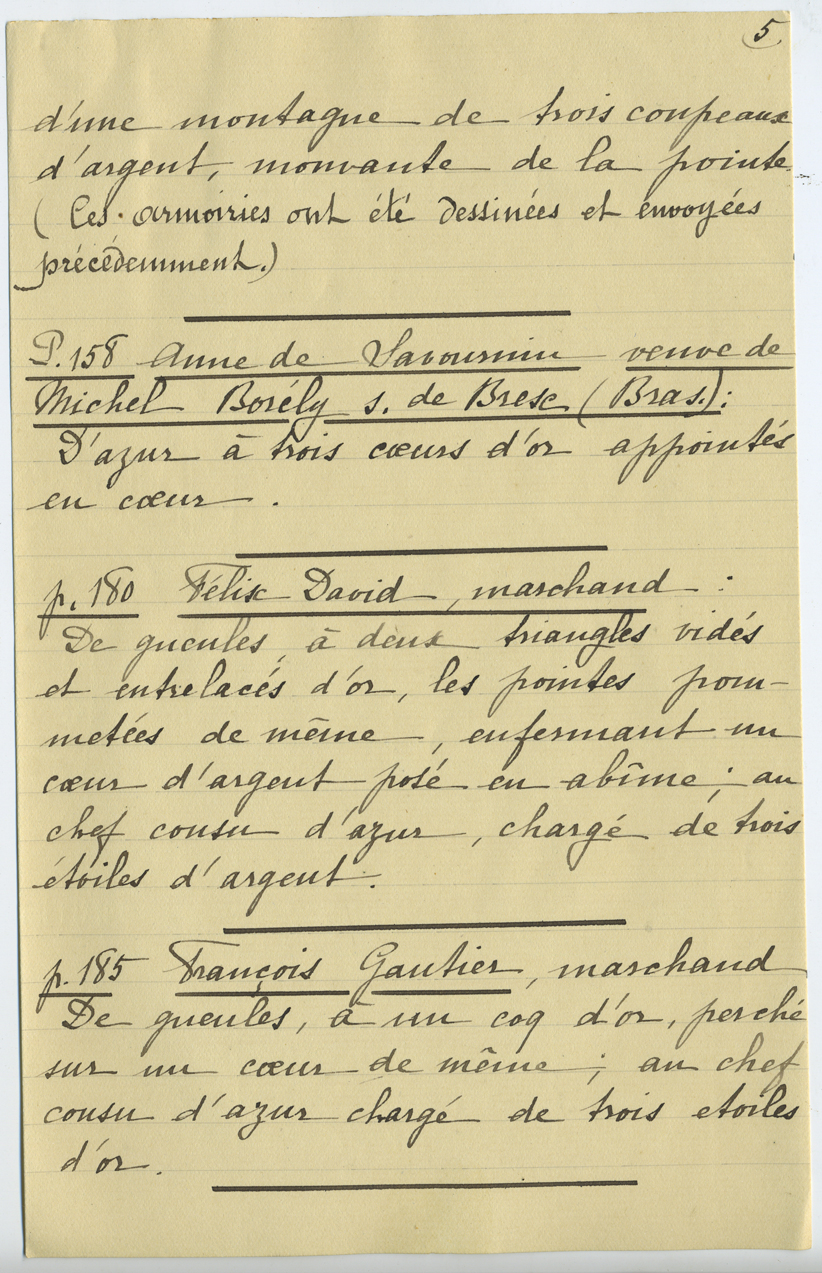 5
d'une montagne de trois coupeaux
d'argent, mouvante de la pointe
(Ces armoiries ont été dessinées et envoyées
précédemment.)
P. 158 Anne de Savournin veuve de
Michel Borély s. de Bresc (Bras.):
D'azur à trois cœurs d'or appointés
en cœur.
p. 180 Félix David, marchand :
De gueules, à deux triangles vidés
et entrelacés d'or, les pointes pom-
metées de même, enfermant un
cœur d'argent posé en abîme; au
chef cousu d'azur, chargé de trois
étoiles d'argent.
p. 185 François Gautier, marchand
De gueules, à un coq d'or, perché
sur un cœur de même; au chef
cousu d'azur chargé de trois etoiles
d'or.